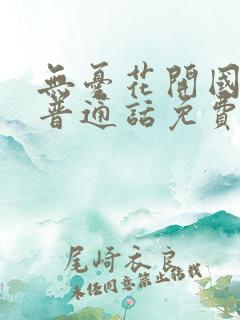 無憂花開國
普通話免費
尾崎衣良
未经同意禁止转载